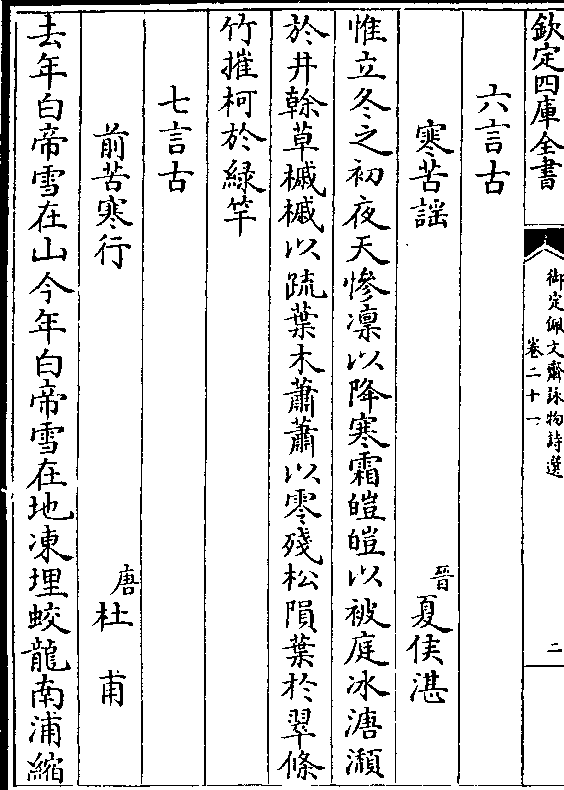 欽定四庫全書
御定佩文齋詠物詩選
卷二十一
二
六言古
寒苦謡
晉夏侯湛
惟立冬之初夜天慘凛以降寒霜皚皚以被庭冰溏瀬
於井幹草槭槭以疏葉木蕭蕭以零殘松隕葉於翠條
竹摧柯於緑竿
七言古
前苦寒行
唐杜甫
去年白帝雪在山今年白帝雪在地凍埋蛟龍南浦縮